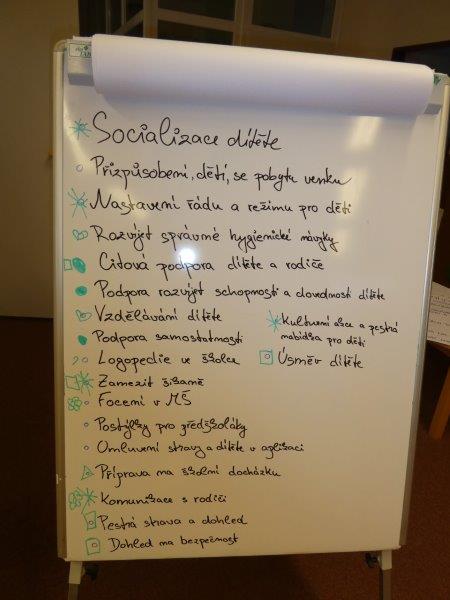 Socializace dítěte
Přizpůsobení, dětí, se pobytu venku
Nastavení řádu a režimu pro děti
Rozvíjet správné hygienické návyky
Citová podpora dítěte a rodiče
Podpora rozvíjet schopností a dovedností dítěte
Vzdělávání dítěte
Podpora samostatnosti
Logopedie ve školce
Zamezit šikaně
Focení v MŠ
Postýlky pro předškoláky
Omluvení stravy a dítěte v aplikaci
Příprava na školní docházku
Komunikace s rodiči
Pestrá strava a dohled
Dohled na bezpečnost
Kulturní akce a pestrá
nabídka pro děti
Úsměv dítěte